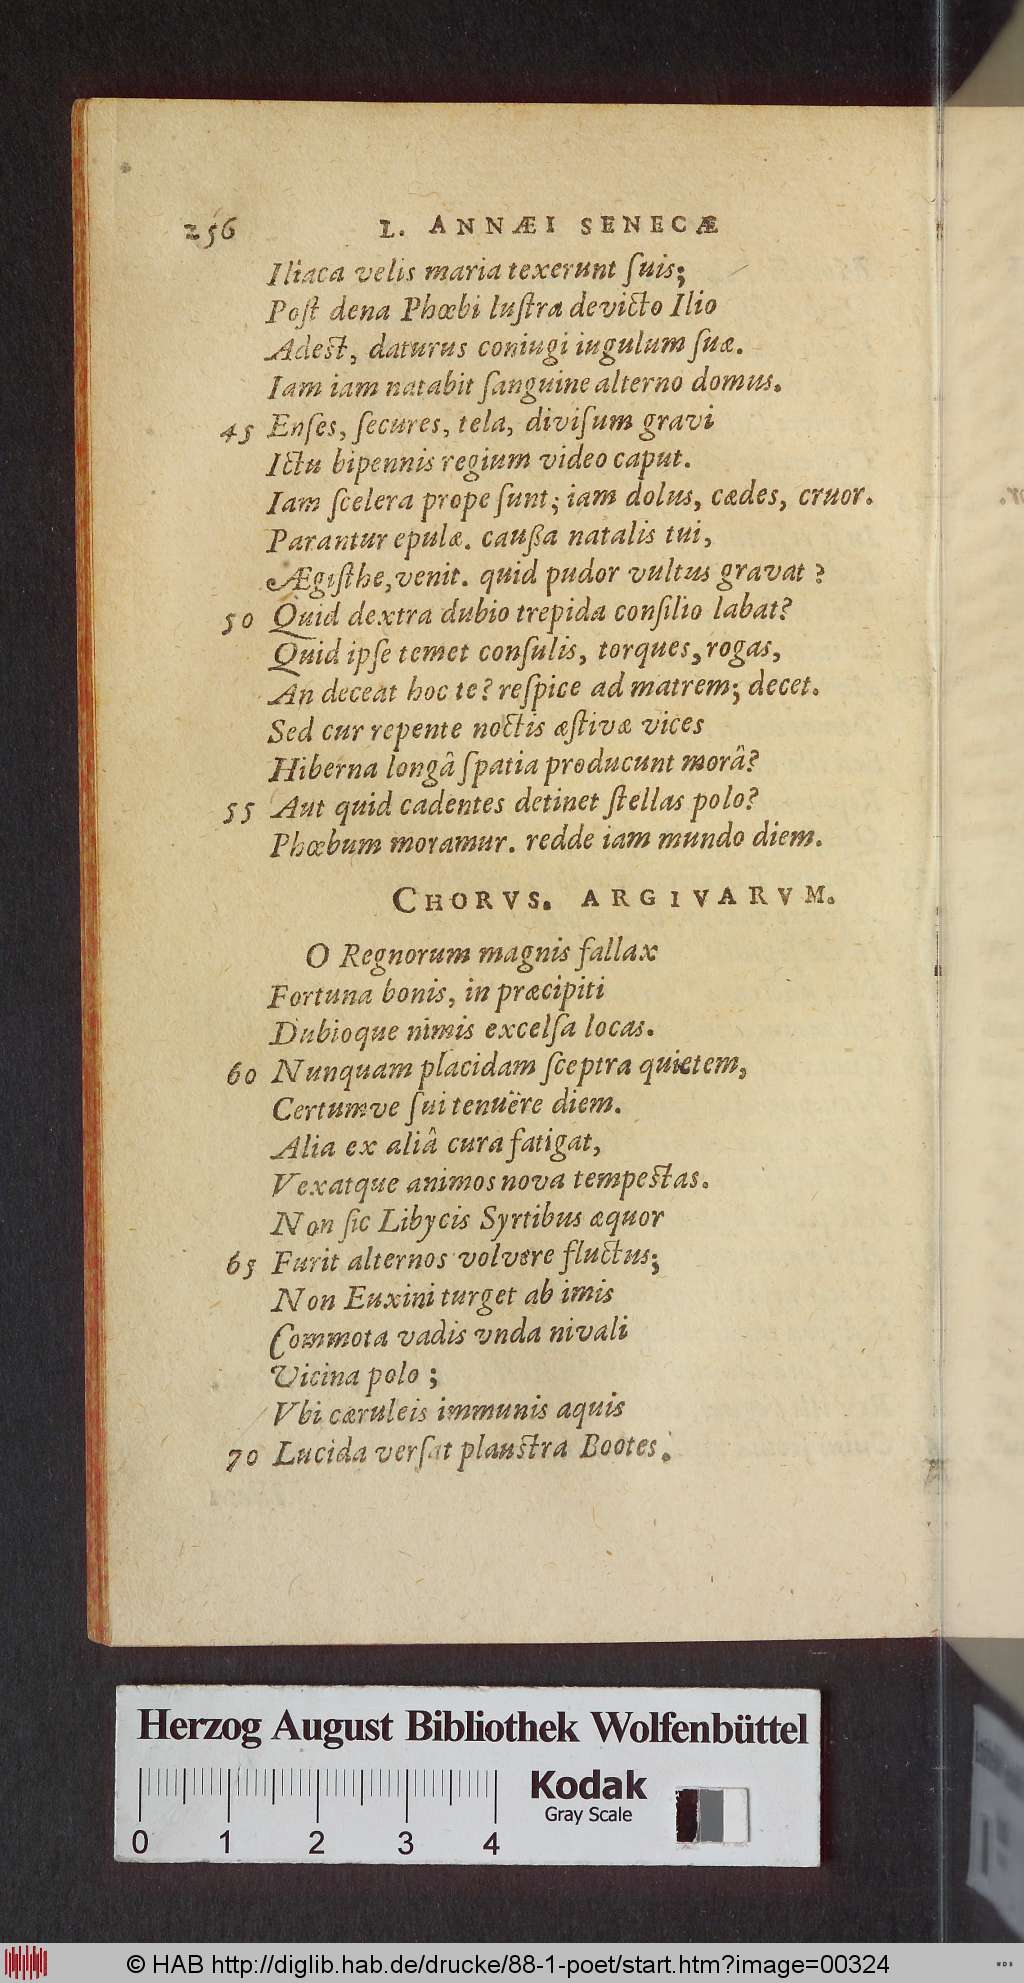 256 L. ANNÆI SENECÆ
Iliaca velis maria texerunt ſuis;
Poſt dena Phœbi luſtra devicto Ilio
Adest, daturus coniugi iugulum ſuæ.
Iam iam natabit ſanguine alterno domus.
45 Enſes, ſecures, tela, diviſum gravi
Ictu bipennis regium video caput.
Iam ſcelera prope ſunt; iam dolus, cædes, cruor.
Parantur epulæ. cauſſa natalis tui,
Ægiſthe, venit. quid pudor vultus gravat?
50 Quid dextra dubio trepida conſilio labat?
Quid ipſe temet conſulis, torques, rogas,
An deceat hoc te? reſpice ad matrem; decet.
Sed cur repente noctis æſtivæ vices
Hiberna longâ ſpatia producunt morâ?
55 Aut quid cadentes detinet ſtellas polo?
Phœbum moramur. redde iam mundo diem.
CHORVS. ARGIVARVM.
O Regnorum magnis fallax
Fortuna bonis, in præcipiti
Dubioque nimis excelſa locas.
60 Nunquam placidam ſceptra quietem,
Certumve ſui tenuêre diem.
Alia ex aliâ cura fatigat,
Vexatque animos nova tempestas.
Non ſic Libycis Syrtibus æquor
65 Furit alternos volvere fluctus;
Non Euxini turget ab imis
Commota vadis vnda nivali
Vicina polo;
Vbi cæruleis immunis aquis
70 Lucida verſat plaustra Bootes.
Herzog August Bibliothek Wolfenbüttel
Kodak
Gray Scale
0 1 2 3 4
© HAB http://diglib.hab.de/drucke/88-1-poet/start.htm?image=00324